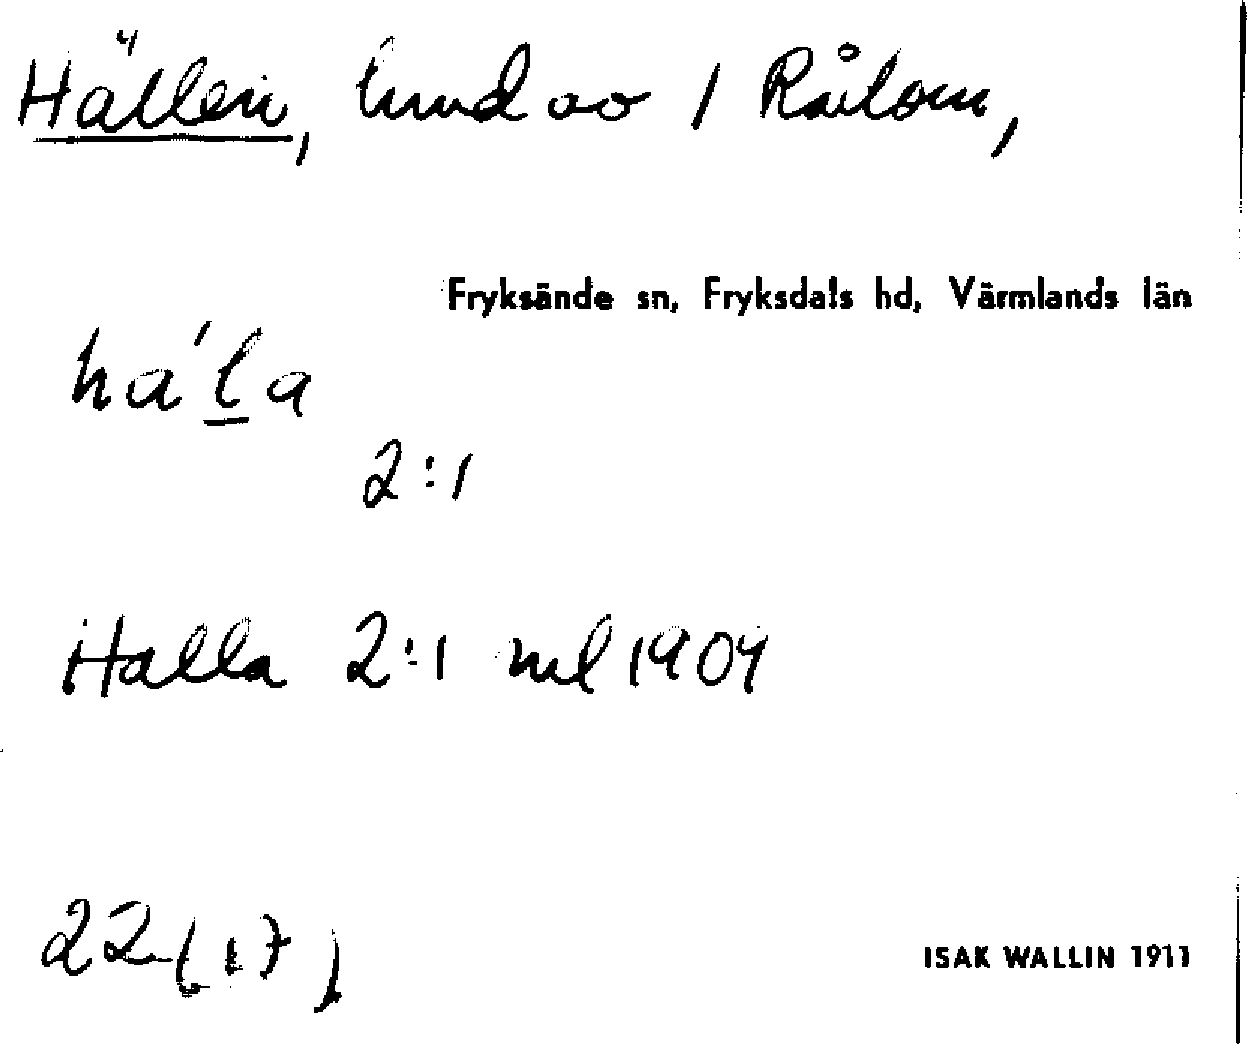 Hällen, lund av 1 Rålom,
Fryksände sn, Fryksdals hd, Värmlands län
ha´la
2:1
Halla 2:1 ml 1904
22 (17)
ISAK WALLIN 1911